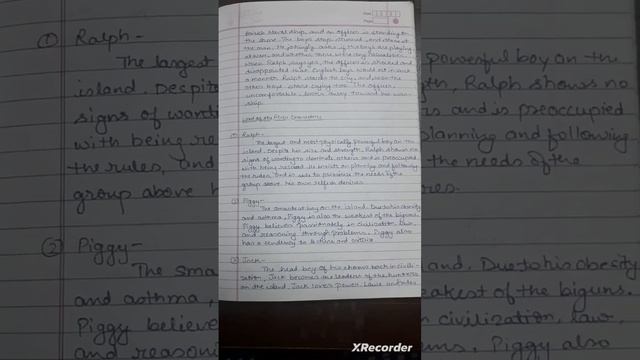 British naval ship, and an officer is standing on
the shore. The boys stop stunned and stare at
the man. He jokingly asks if the boys are playing
at war, and whether there were any casualties.
When Ralph says yes, the officer is shocked and
disappointed that English boys would act in such
a manner. Ralph starts to cry, and soon the
other boys start crying too. The officer,
uncomfortable, looks away toward his war-
ship.
Characters
① Ralph-
The largest and most physically powerful boy on the
island. Despite his size and strength, Ralph shows no
signs of wanting to dominate others and is preoccupied
with being rescued. He insists on planning and following
the rules, and is able to prioritize the needs of the
group above his own selfish desires.
② Piggy-
The smartest boy on the island. Due to his obesity
and asthma, Piggy is also the weakest of the biguns.
Piggy believes passionately in civilization, law,
and reasoning through problems. Piggy also
has a tendency to lecture and criticize.
③ Jack-
The head boy of his chorus back in civili-
zation, Jack becomes the leader of the hunters
on the island. Jack loves power. Laws and rules
① Ralph-
The largest
powerful boy on the
island. Despite
Ralph shows no
signs of wanting
and is preoccupied
with being
planning and following
the rules, and
the needs of the
group above
② Piggy-
The
Due to his obesity
and asthma,
of the biguns.
Piggy
civilization, law,
and
Piggy also
XRecorder